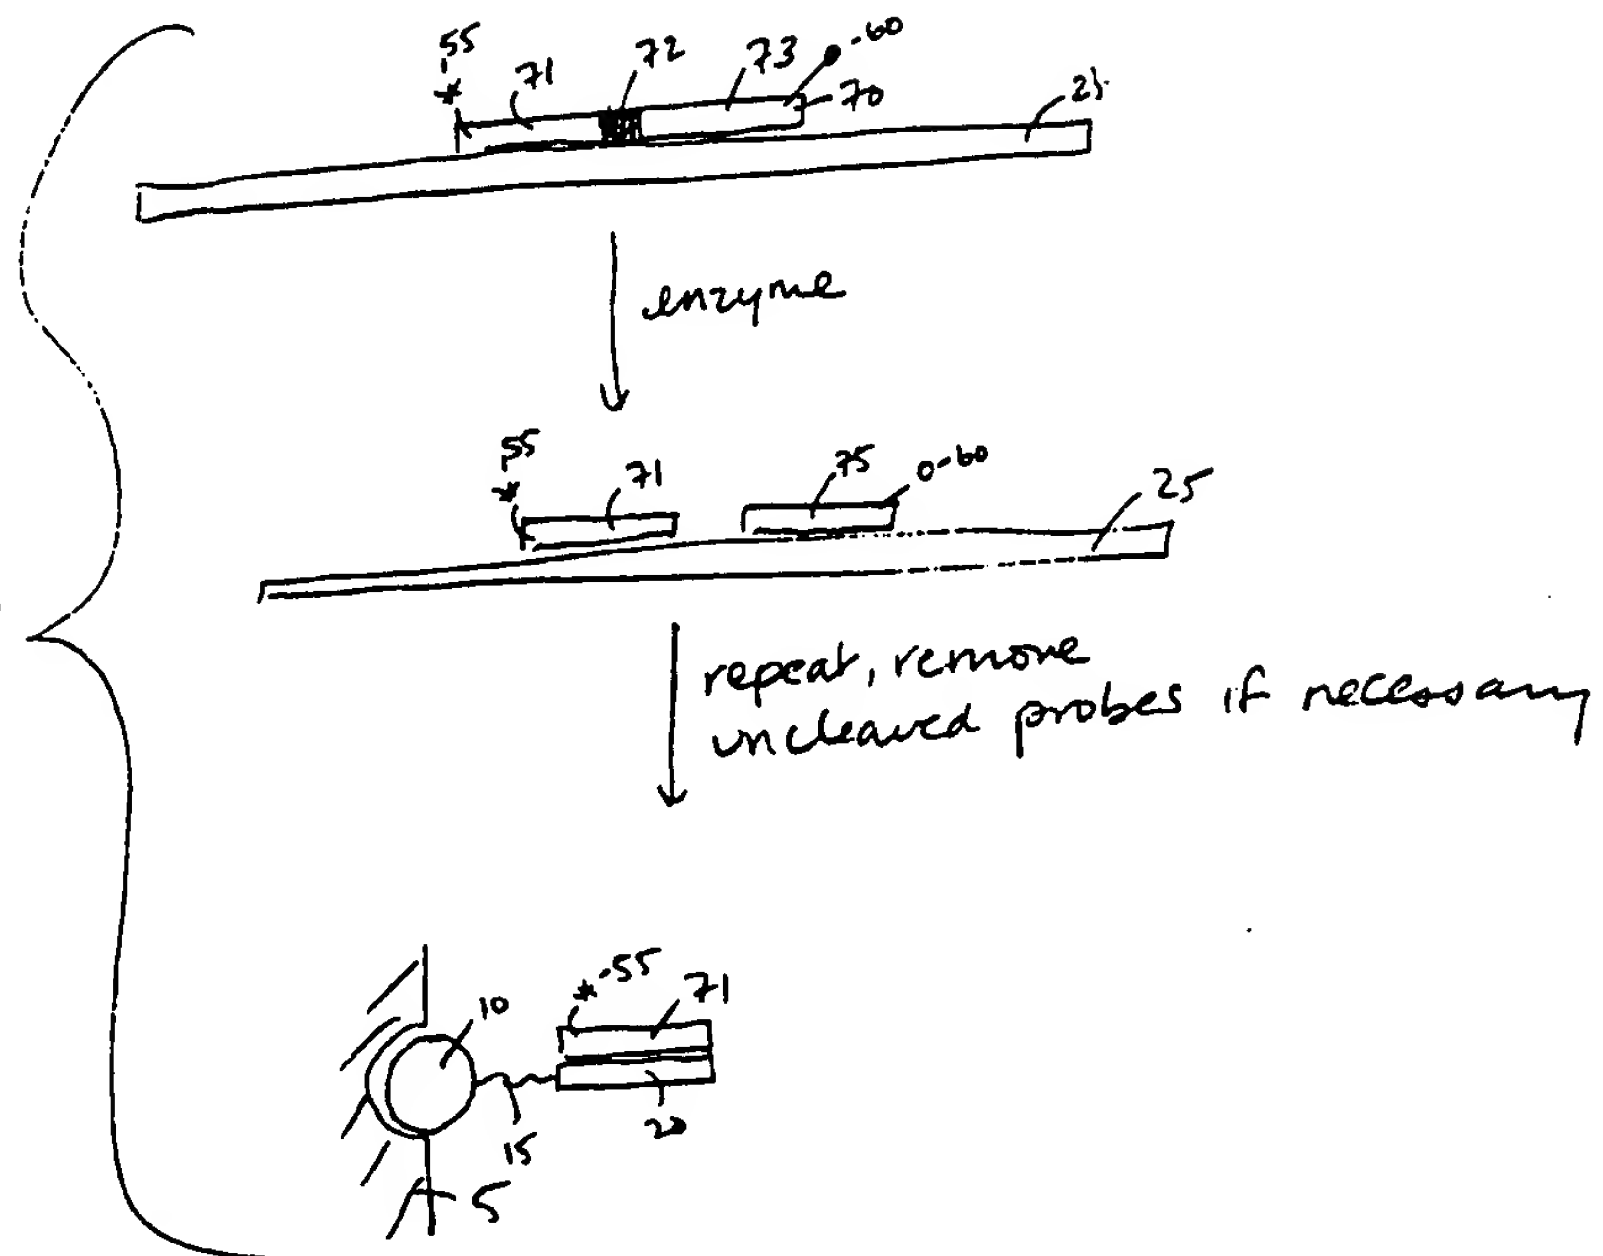 55
71
72
73
-60
70
25
enzyme
55
71
75
0-60
25
repeat, remove
uncleaved probes if necessary
*-55
71
10
15
20
5